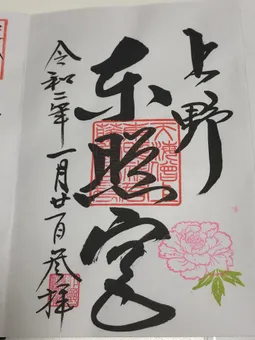 上野
東照宮
令和二年一月廿一日参拝